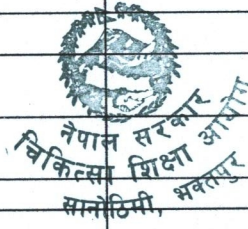 नेपाल सरकार
चिकित्सा शिक्षा आयोग
सानोठिमी, भक्तपुर